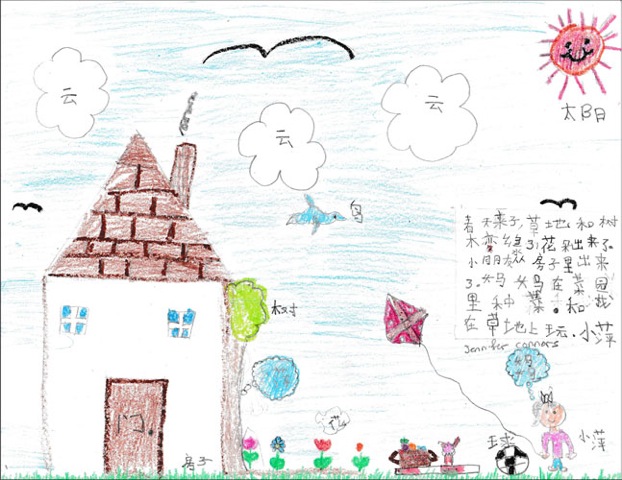 云
云
云
太阳
鸟
草地和树
木变绿了,花朵出来了.
小朋友从房子里出来
了.妈妈在菜园
里种菜。和我
在草地上玩.小萍
Jennifer connors
树
花
门
房子
球
小萍